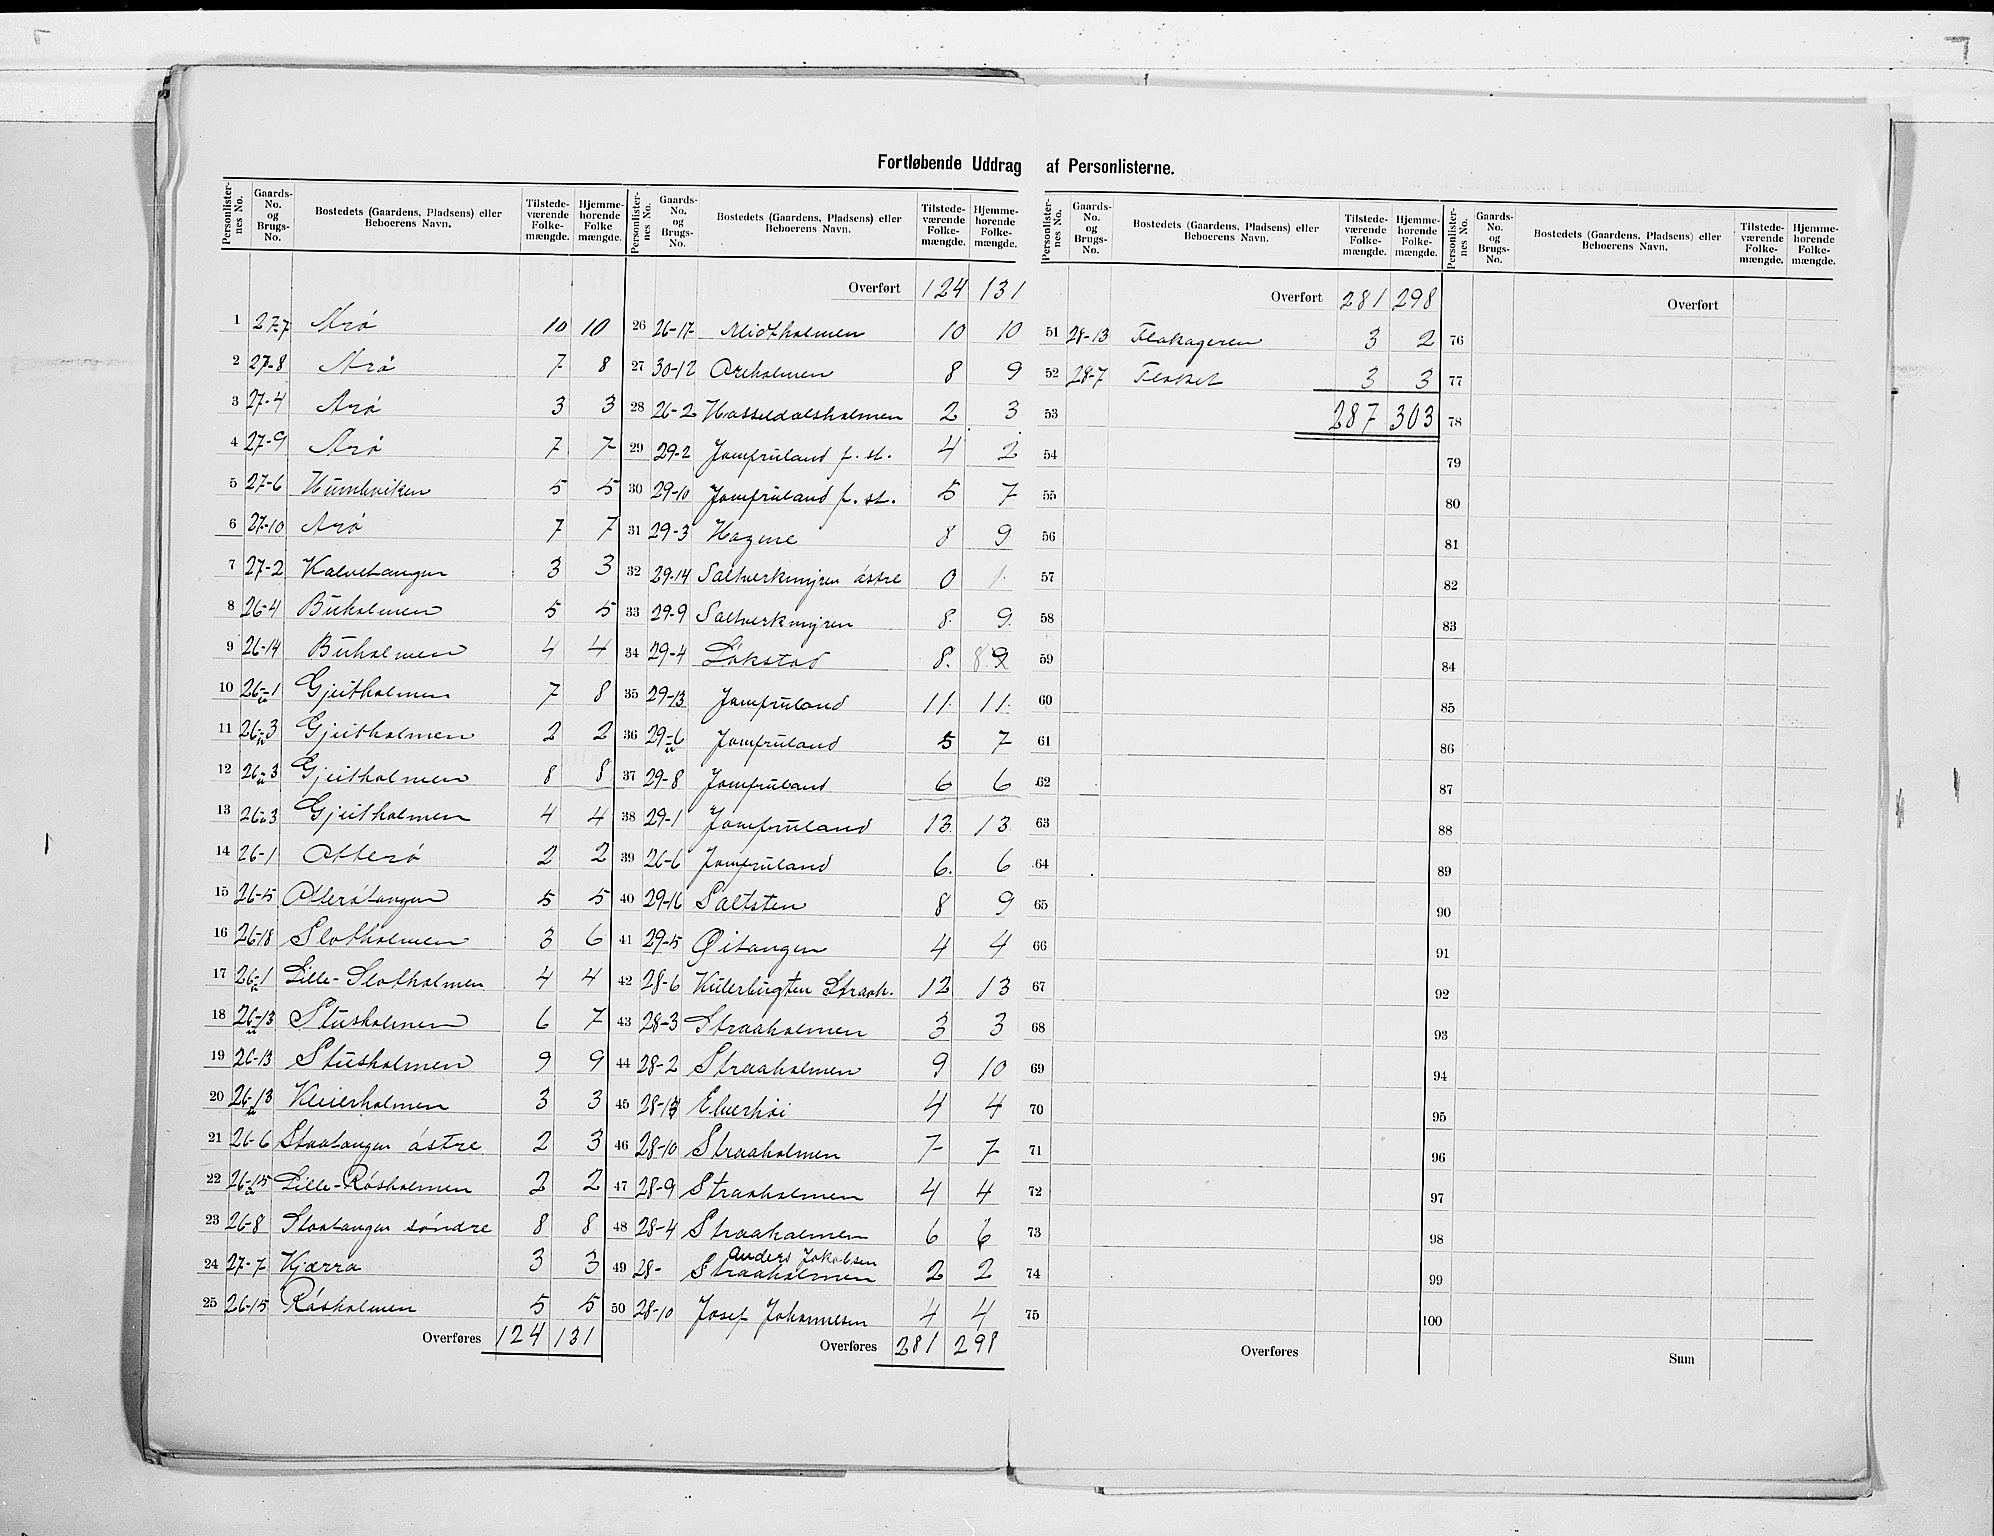 Fortløbende Uddrag af Personlisterne.
Personlisternes No. Gaards-No. og Brugs-No. Bostedets (Gaardens, Pladsens) eller Beboerens Navn. Tilstedeværende Folkemængde. Hjemmehørende Folke mængde.
1 27-7 Arø 10 10
2 27-8 Arø 7 8
3 27-4 Arø 3 3
4 27-9 Arø 7 7
5 27-6 Humleviken 5 5
6 27-10 Arø 7 7
7 27-2 Kalvetangen 3 3
8 26-4 Buholmen 5 5
9 26-14 Buholmen 4 4
10 26-1 Gjeitholmen 7 8
11 26-3 Gjeitholmen 2 2
12 26-3 Gjeitholmen 8 8
13 26-3 Gjeitholmen 4 4
14 26-1 Otterø 2 2
15 26-5 Otterøtangen 5 5
16 26-18 Slotholmen 3 6
17 26-1 Lille-Slotholmen 4 4
18 26-13 Stusholmen 6 7
19 26-13 Stusholmen 9 9
20 26-13 Kleierholmen 3 3
21 26-6 Straatangen østre 2 3
22 26-15 Lille-Røsholmen 2 2
23 26-8 Straatangen søndre 8 8
24 27-7 Kjærra 3 3
25 26-15 Røsholmen 5 5
Overføres 124 131
Personlisternes No. Gaards-No. og Brugs-No. Bostedets (Gaardens, Pladsens) eller Beboerens Navn. Tilstedeværende Folkemængde. Hjemmehørende Folkemængde.
Overført 124 131
26 26-17 Midtholmen 10 10
27 30-12 Areholmen 8 9
28 26-2 Hasseldalsholmen 2 3
29 29-2 Jomfruland f. st. 4 2
30 29-10 Jomfruland f. st. 5 7
31 29-3 Hagene 8 9
32 29-14 Saltverkmyren østre 0 1
33 29-9 Saltverkmyren 8 9
34 29-4 Løkstad 8 8 9
35 29-13 Jomfruland 11 11
36 29-6 Jomfruland 5 7
37 29-8 Jomfruland 6 6
38 29-1 Jomfruland 13 13
39 26-6 Jomfruland 6 6
40 29-16 Saltsten 8 9
41 29-5 Øitangen 4 4
42 28-6 Kilerbugten Straah. 12 13
43 28-3 Straaholmen 3 3
44 28-2 Straaholmen 9 10
45 28-13 Elverhøi 4 4
46 28-10 Straaholmen 7 7
47 28-9 Straaholmen 4 4
48 28-4 Straaholmen 6 6
Anders Jakobsen
49 28- Straaholmen 2 2
50 28-10 Josef Johannesen 4 4
Overføres 281 298
Personlisternes No. Gaards-No. og Brugs-No. Bostedets (Gaardens, Pladsens) eller Beboerens Navn. Tilstedeværende Folkemængde. Hjemmehørende Folkemængde.
Overført 281 298
51 28-13 Flakageren 3 2
52 28-7 Flaket 3 3
53 287 303
54
55
56
57
58
59
60
61
62
63
64
65
66
67
68
69
70
71
72
73
74
75
Overføres
Personlisternes No. Gaards-No. og Brugs-No. Bostedets (Gaardens, Pladsens) eller Beboerens Navn. Tilstedeværende Folkemængde. Hjemmehørende Folkemængde.
Overført
76
77
78
79
80
81
82
83
84
85
86
87
88
89
90
91
92
93
94
95
96
97
98
99
100
Sum